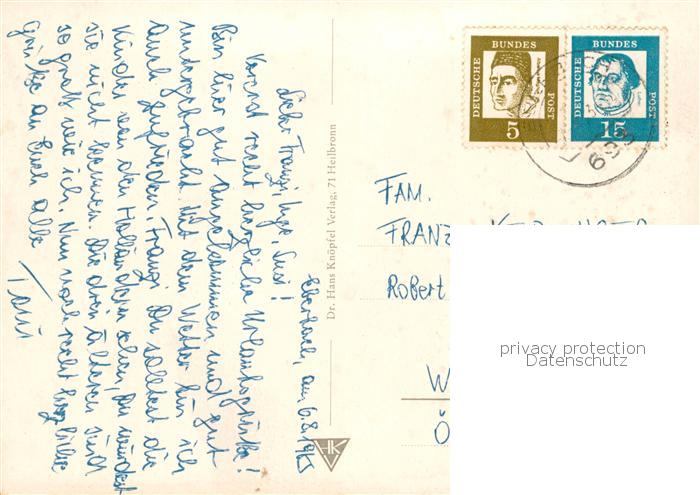 Eberbach, am 6.8.1963
Liebe Franzi, Inge, Susi!
Vorerst recht herzliche Urlaubsgrüße!
Bin hier gut angekommen und gut
untergebracht. Mit dem Wetter bin ich
auch zufrieden. Franzi Du solltest die
Kinder von den Holländern sehen, Du würdest
sie nicht kennen. Die drei älteren sind
so groß wie ich. Nun noch recht herzliche
Grüße an Euch alle
Toni
Dr. Hans Knöpfel Verlag, 71 Heilbronn
HK
DEUTSCHE BUNDES POST
5
DEUTSCHE BUNDES POST
15
FAM.
FRANZ
Robert
W
Ö
privacy protection
Datenschutz